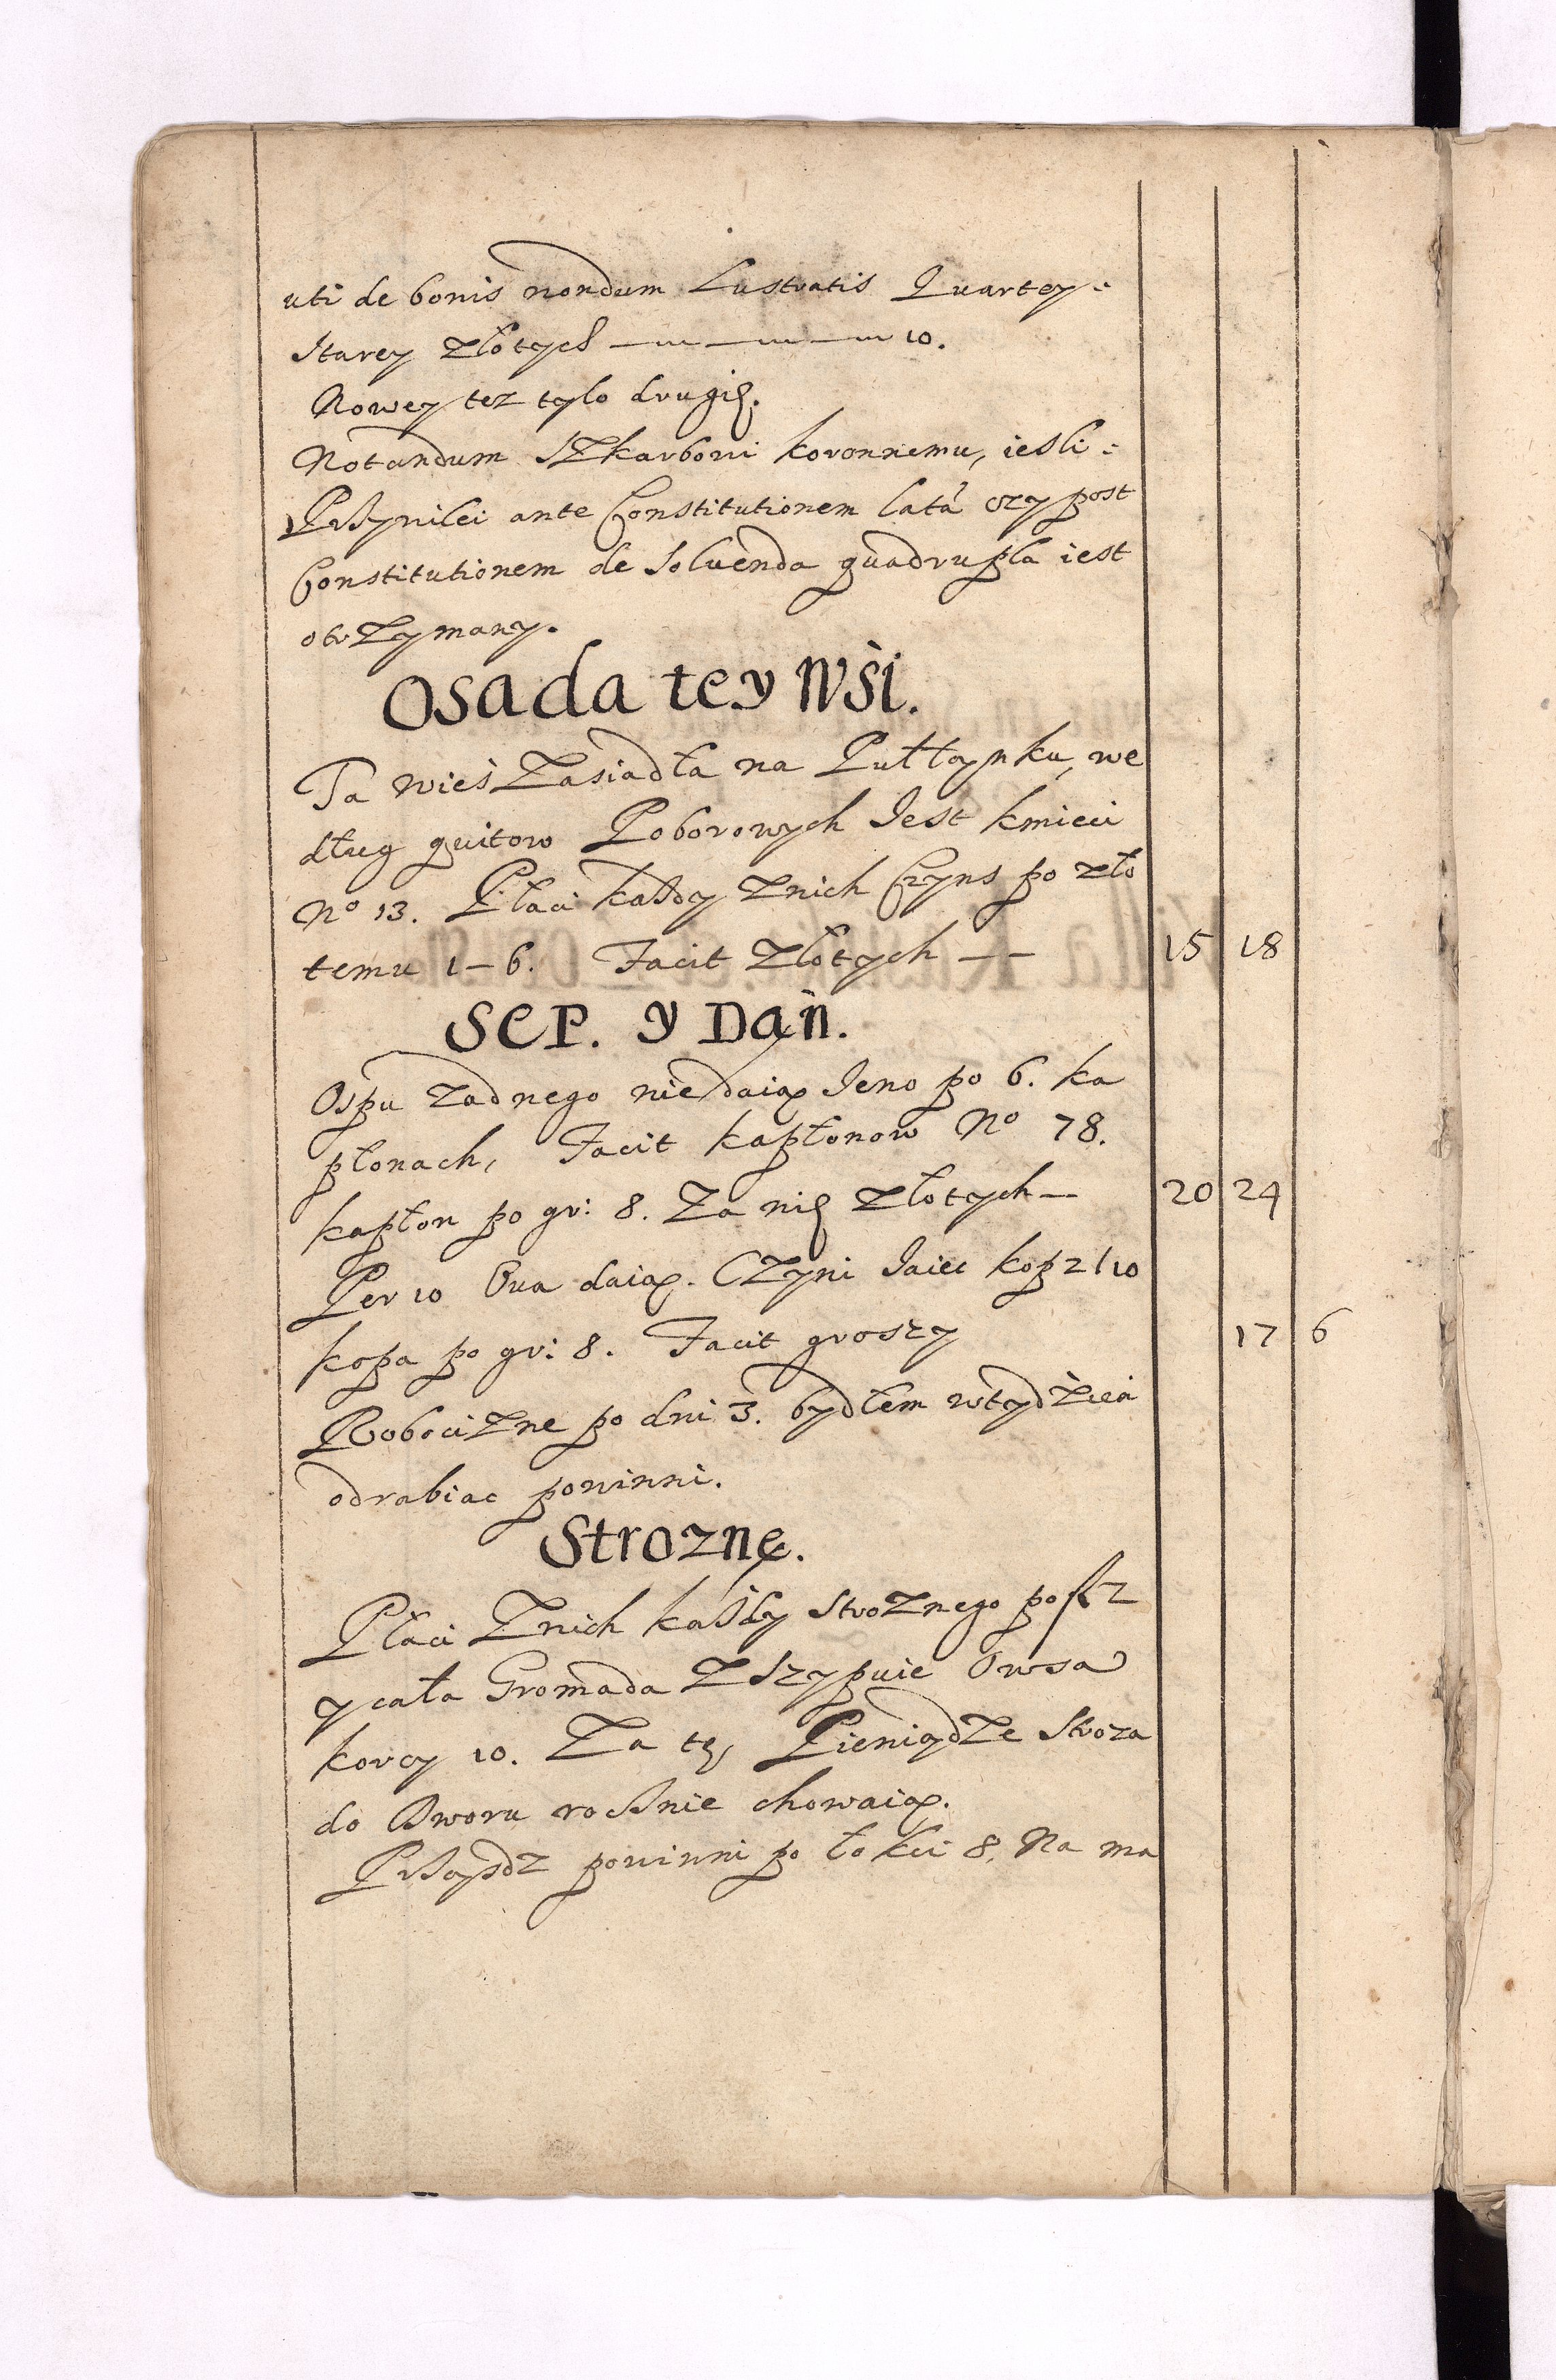 uti de bonis nondum Lustratis Quartey:
Starey Złotych — — — 10.
Nowey tez tylo drugich.
Notandum Szkarbowi koronnemu, iesli:
Przywilei ante Constitutionem latã czy post
Constitutionem de Soluenda quadrupla iest
otrzymany.
Osada tey Wśi.
Ta wieś Zasiadła na Pułłynku, we
dług quitow Poborowych Jest kmieci
No 13. Płaci każdy Znich Czyns po zło
temu 1–6. Facit Złotych — — 15 18
SEP. y Dań.
Ospu zadnego niedaią Jeno po 6. ka
płonach, Facit kapłonow No 78.
kapłon po gr: 8. Za nich Złotych — 20 24
Per 10 Oua daią. Czyni Jaiec kop 2/10
kopa po gr: 8. Facit groszy 17 6
Robociznę po dni 3. bydłem wtydzień
odrabiac powinni.
Strozne.
Płaci Znich każdy Stroznego po
y cała Gromada Zszypuie Owsa
korcy 10. Za te Pieniądze Stroza
do Dworu rocznie chowaią.
Prząsdz powinni po łokci 8. Na ma